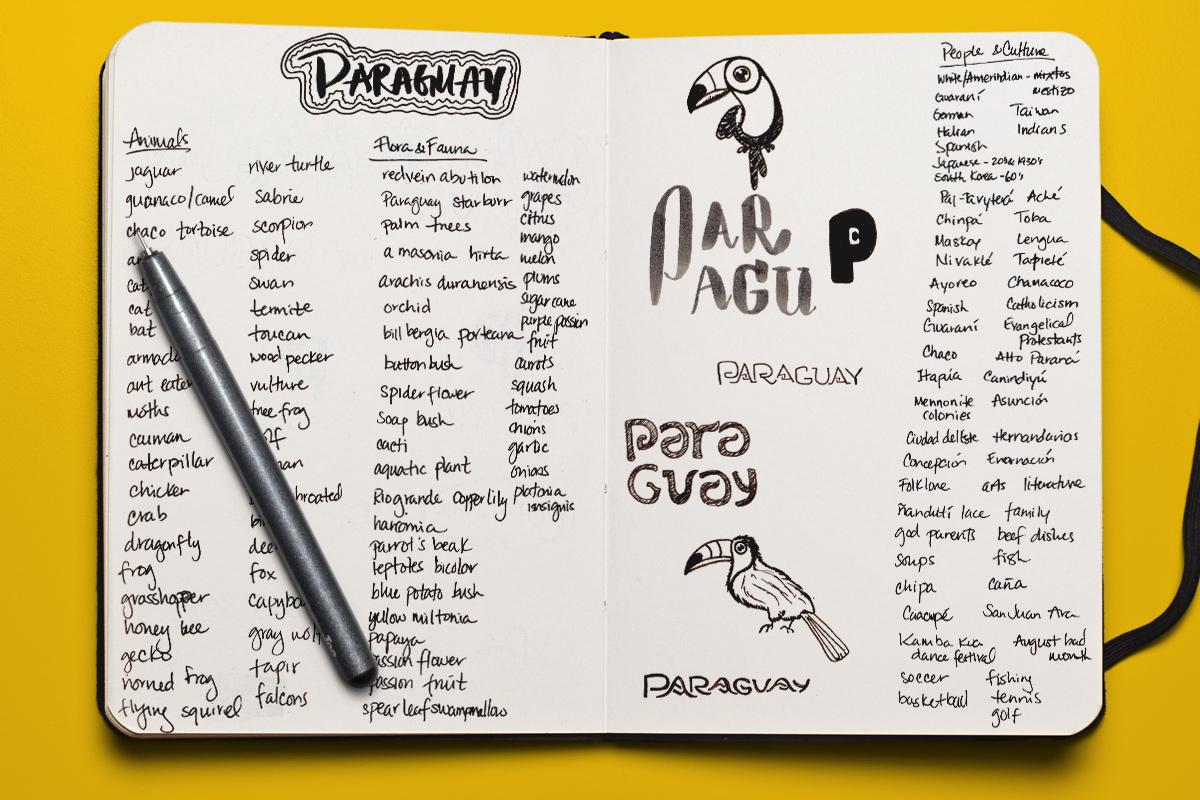 PARAGUAY
Animals
jaguar
guanaco/camel
chaco tortoise
cat
bat
ant eater
moths
caiman
caterpillar
chicken
crab
dragonfly
frog
grasshopper
honey bee
gecko
horned frog
flying squirel
river turtle
Sabrie
scorpion
spider
swan
termite
toucan
wood pecker
vulture
tree frog
fox
gray wolf
tapir
falcons
Flora & Fauna
redvein abutilon
Paraguay starburr
palm trees
a masonia hirta
arachis duranensis
orchid
bill bergia porteana
button bush
Spider flower
Soap bush
cacti
aquatic plant
Rio grande copperlily
harromia
parrot's beak
leptotes bicolor
blue potato bush
yellow miltonia
papaya
passion flower
passion fruit
spear leaf swampmallow
watermelon
grapes
citrus
mango
melon
plums
sugar cane
purple passion
fruit
carrots
squash
tomatoes
onions
garlic
onions
platonia
insignis
PAR
AGU
P
PARAGUAY
para
Guay
PARAGUAY
People & Culture
White/Amerindian - mixtos
mestizo
Guaraní
German Taiwan
Italian Indians
Spanish
Japanese - 20's & 1930's
South Korea - 60's
Paí-Tavyterá Aché
Chiripá Toba
Maskoy Lengua
Nivaklé Tapieté
Ayoreo Chamacoco
Spanish Catholicism
Guaraní Evangelical
Protestants
Chaco Alto Paraná
Itapúa Canindiyú
Mennonite Asunción
colonies
Ciudad del Este Hernandarios
Concepción Encarnación
Folklore arts literature
Ñandutí lace family
god parents beef dishes
soups fish
chipa caña
Caacupé San Juan Ara
Kamba kua August bad
dance festival month
soccer fishing
basketball tennis
golf